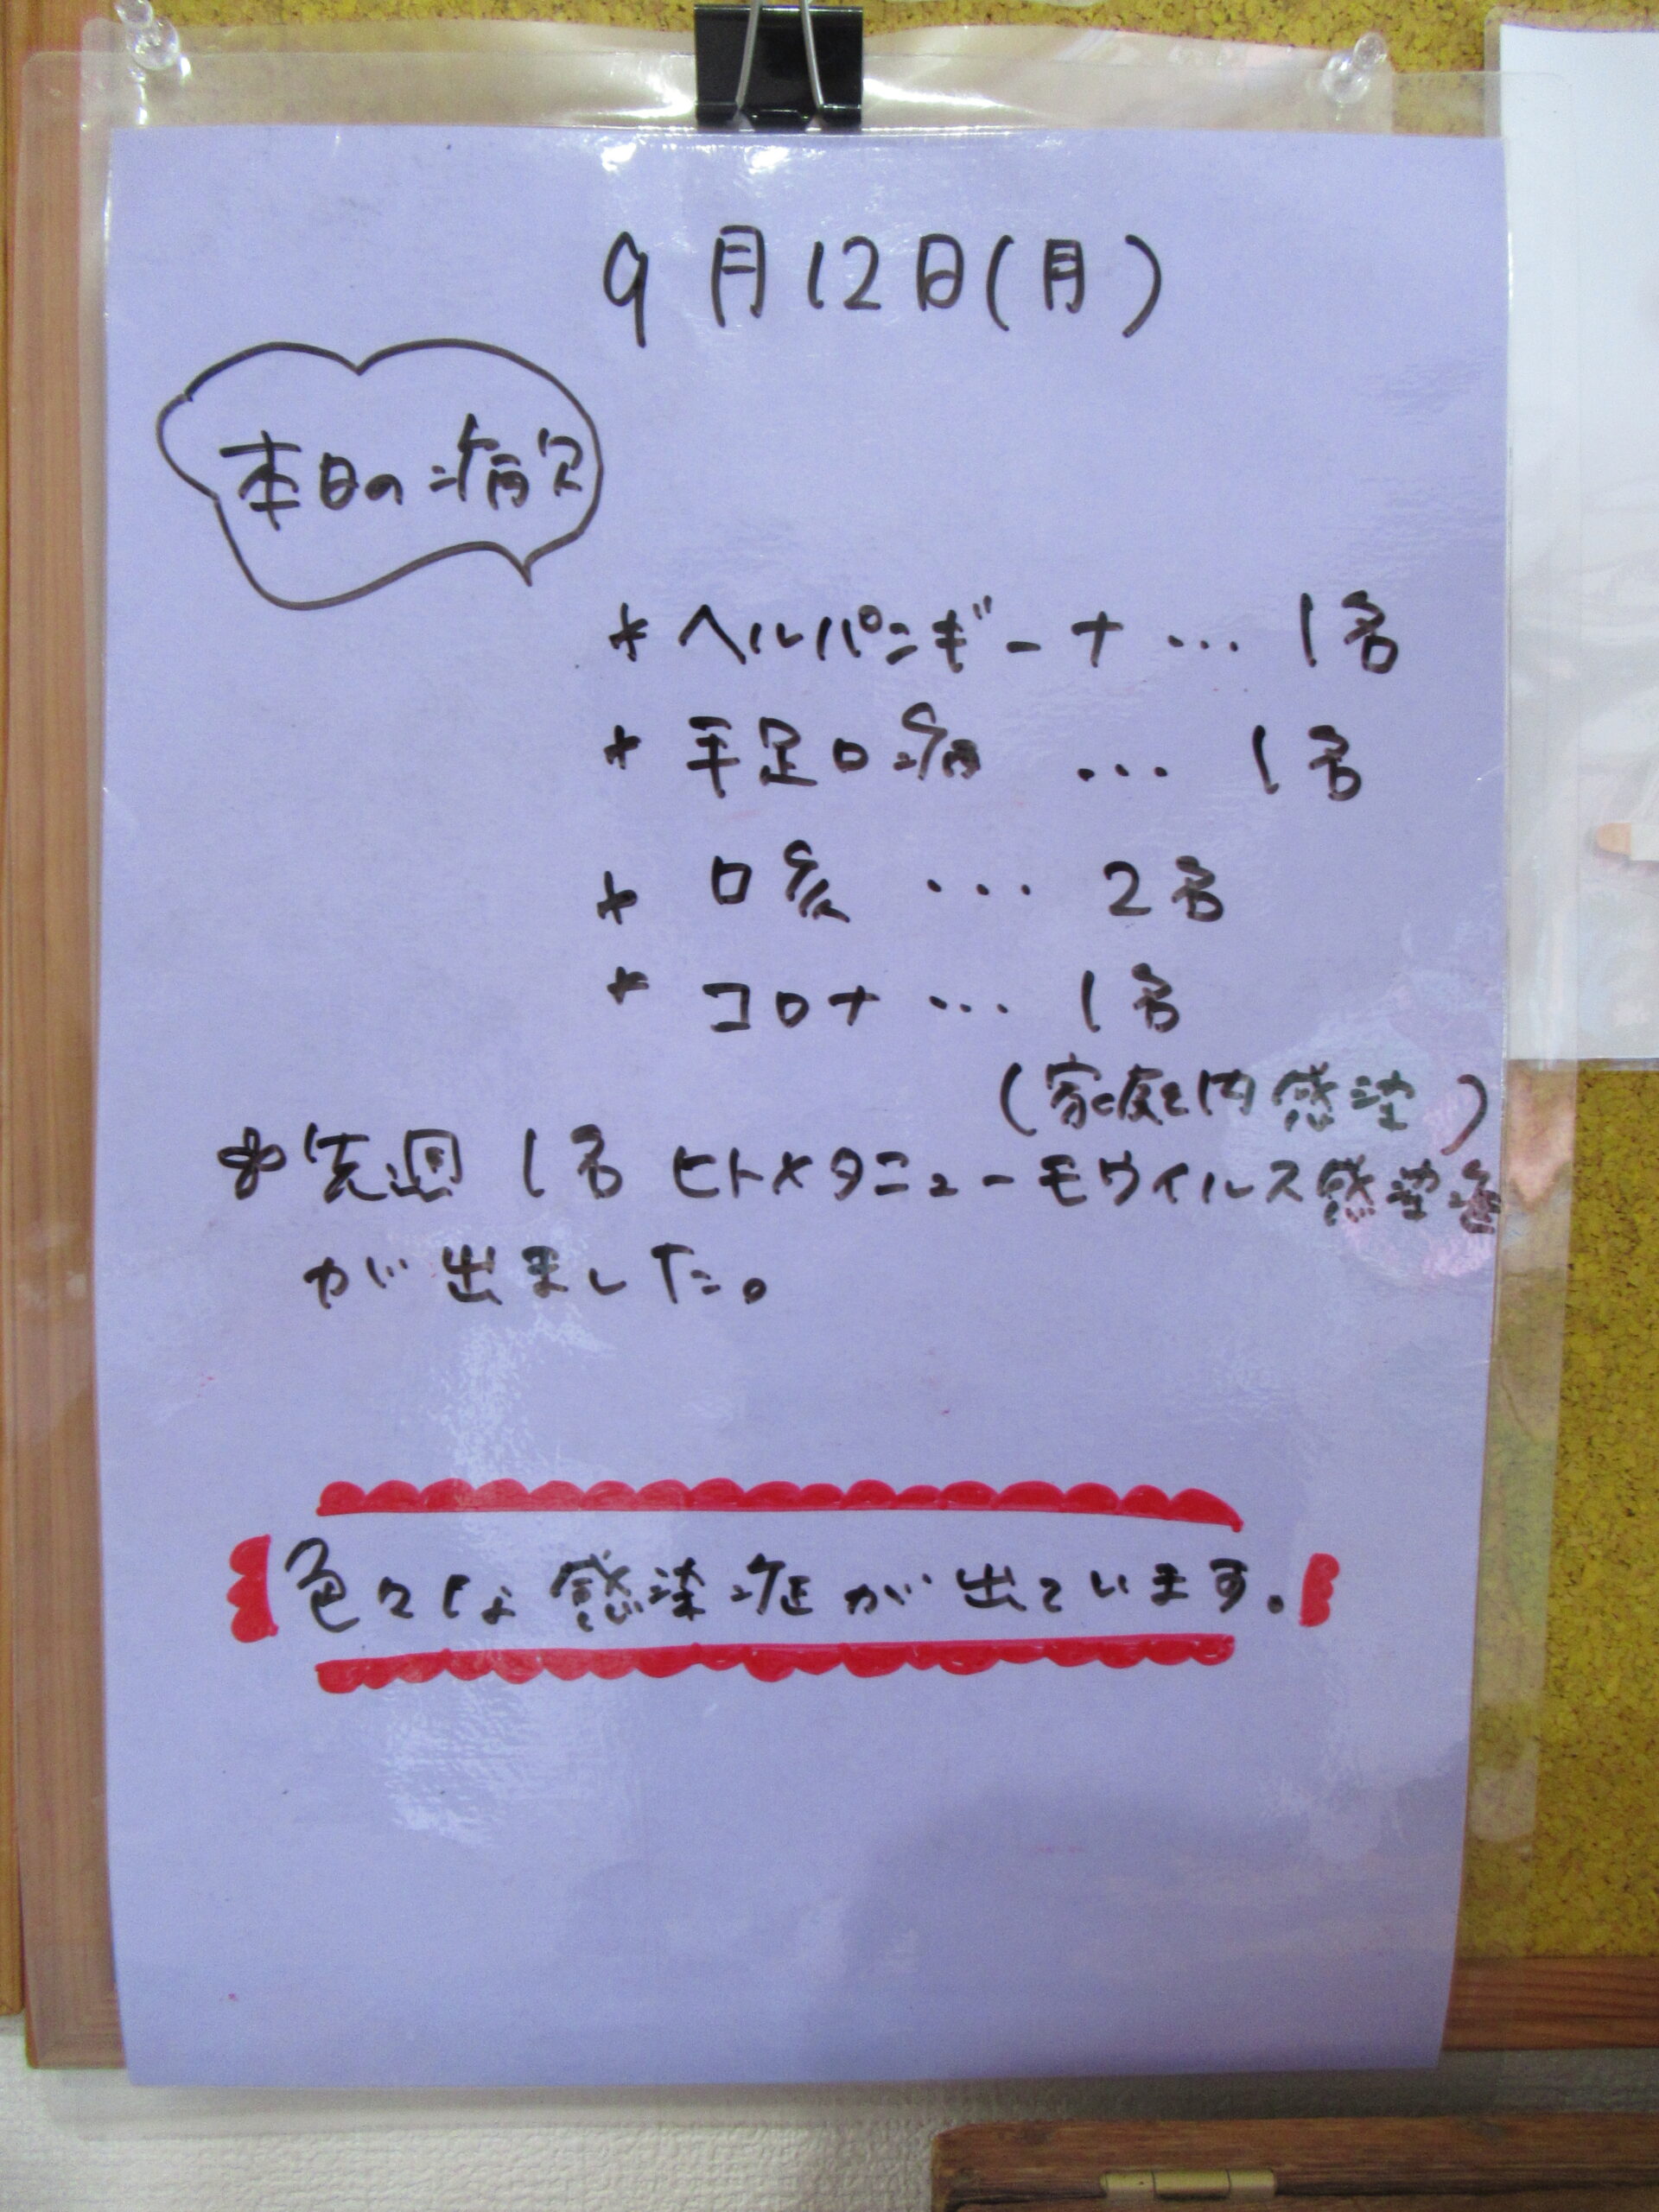 9月12日(月)
本日の病欠
* ヘルパンギーナ … 1名
* 手足口病 … 1名
* 咳 … 2名
* コロナ … 1名
(家庭内感染)
* 先週 1名 ヒトメタニューモウイルス感染症
が出ました。
色々な感染症が出ています。